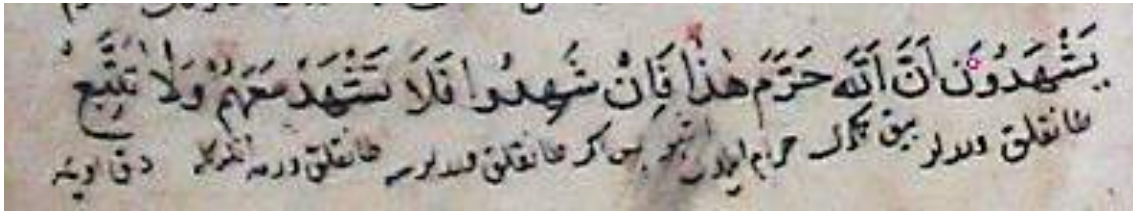 يَشْهَدُونَ اَنَّ اَللّٰهَ حَرَّمَ هٰذَا فَاِنْ شَهِدُوا فَلَا تَشْهَدْ مَعَهُمْ وَلَا تَتَّبِعْ
طانقلق ويرلر حرام پس اكر طانقلق ويرلرسه طانقلق ويرمه انلرله دخى اويمه